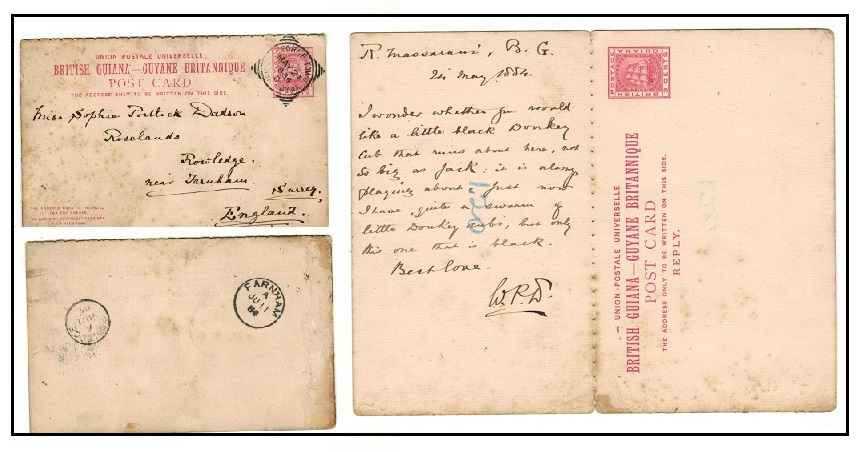 UNION POSTALE UNIVERSELLE
BRITISH GUIANA—GUYANE BRITANNIQUE
POST CARD
THE ADDRESS ONLY TO BE WRITTEN ON THIS SIDE.
Miss Sophie Portlock Dadson
Roselands
Rowledge.
near Farnham.
Surrey.
England.
FARNHAM
A
JU 11
84
R. Massaruni, B. G.
24 May 1884.
I wonder whether you would
like a little black Donkey
cub that runs about here, not
so big as Jack: it is always
playing about just now
I have quite a swarm of
little Donkey cubs, but only
this one that is black.
Best love.
W.P.D.
POSTAGE
GUIANA
3 CENTS
BRITISH
UNION POSTALE UNIVERSELLE
BRITISH GUIANA—GUYANE BRITANNIQUE
POST CARD
THE ADDRESS ONLY TO BE WRITTEN ON THIS SIDE.
REPLY.